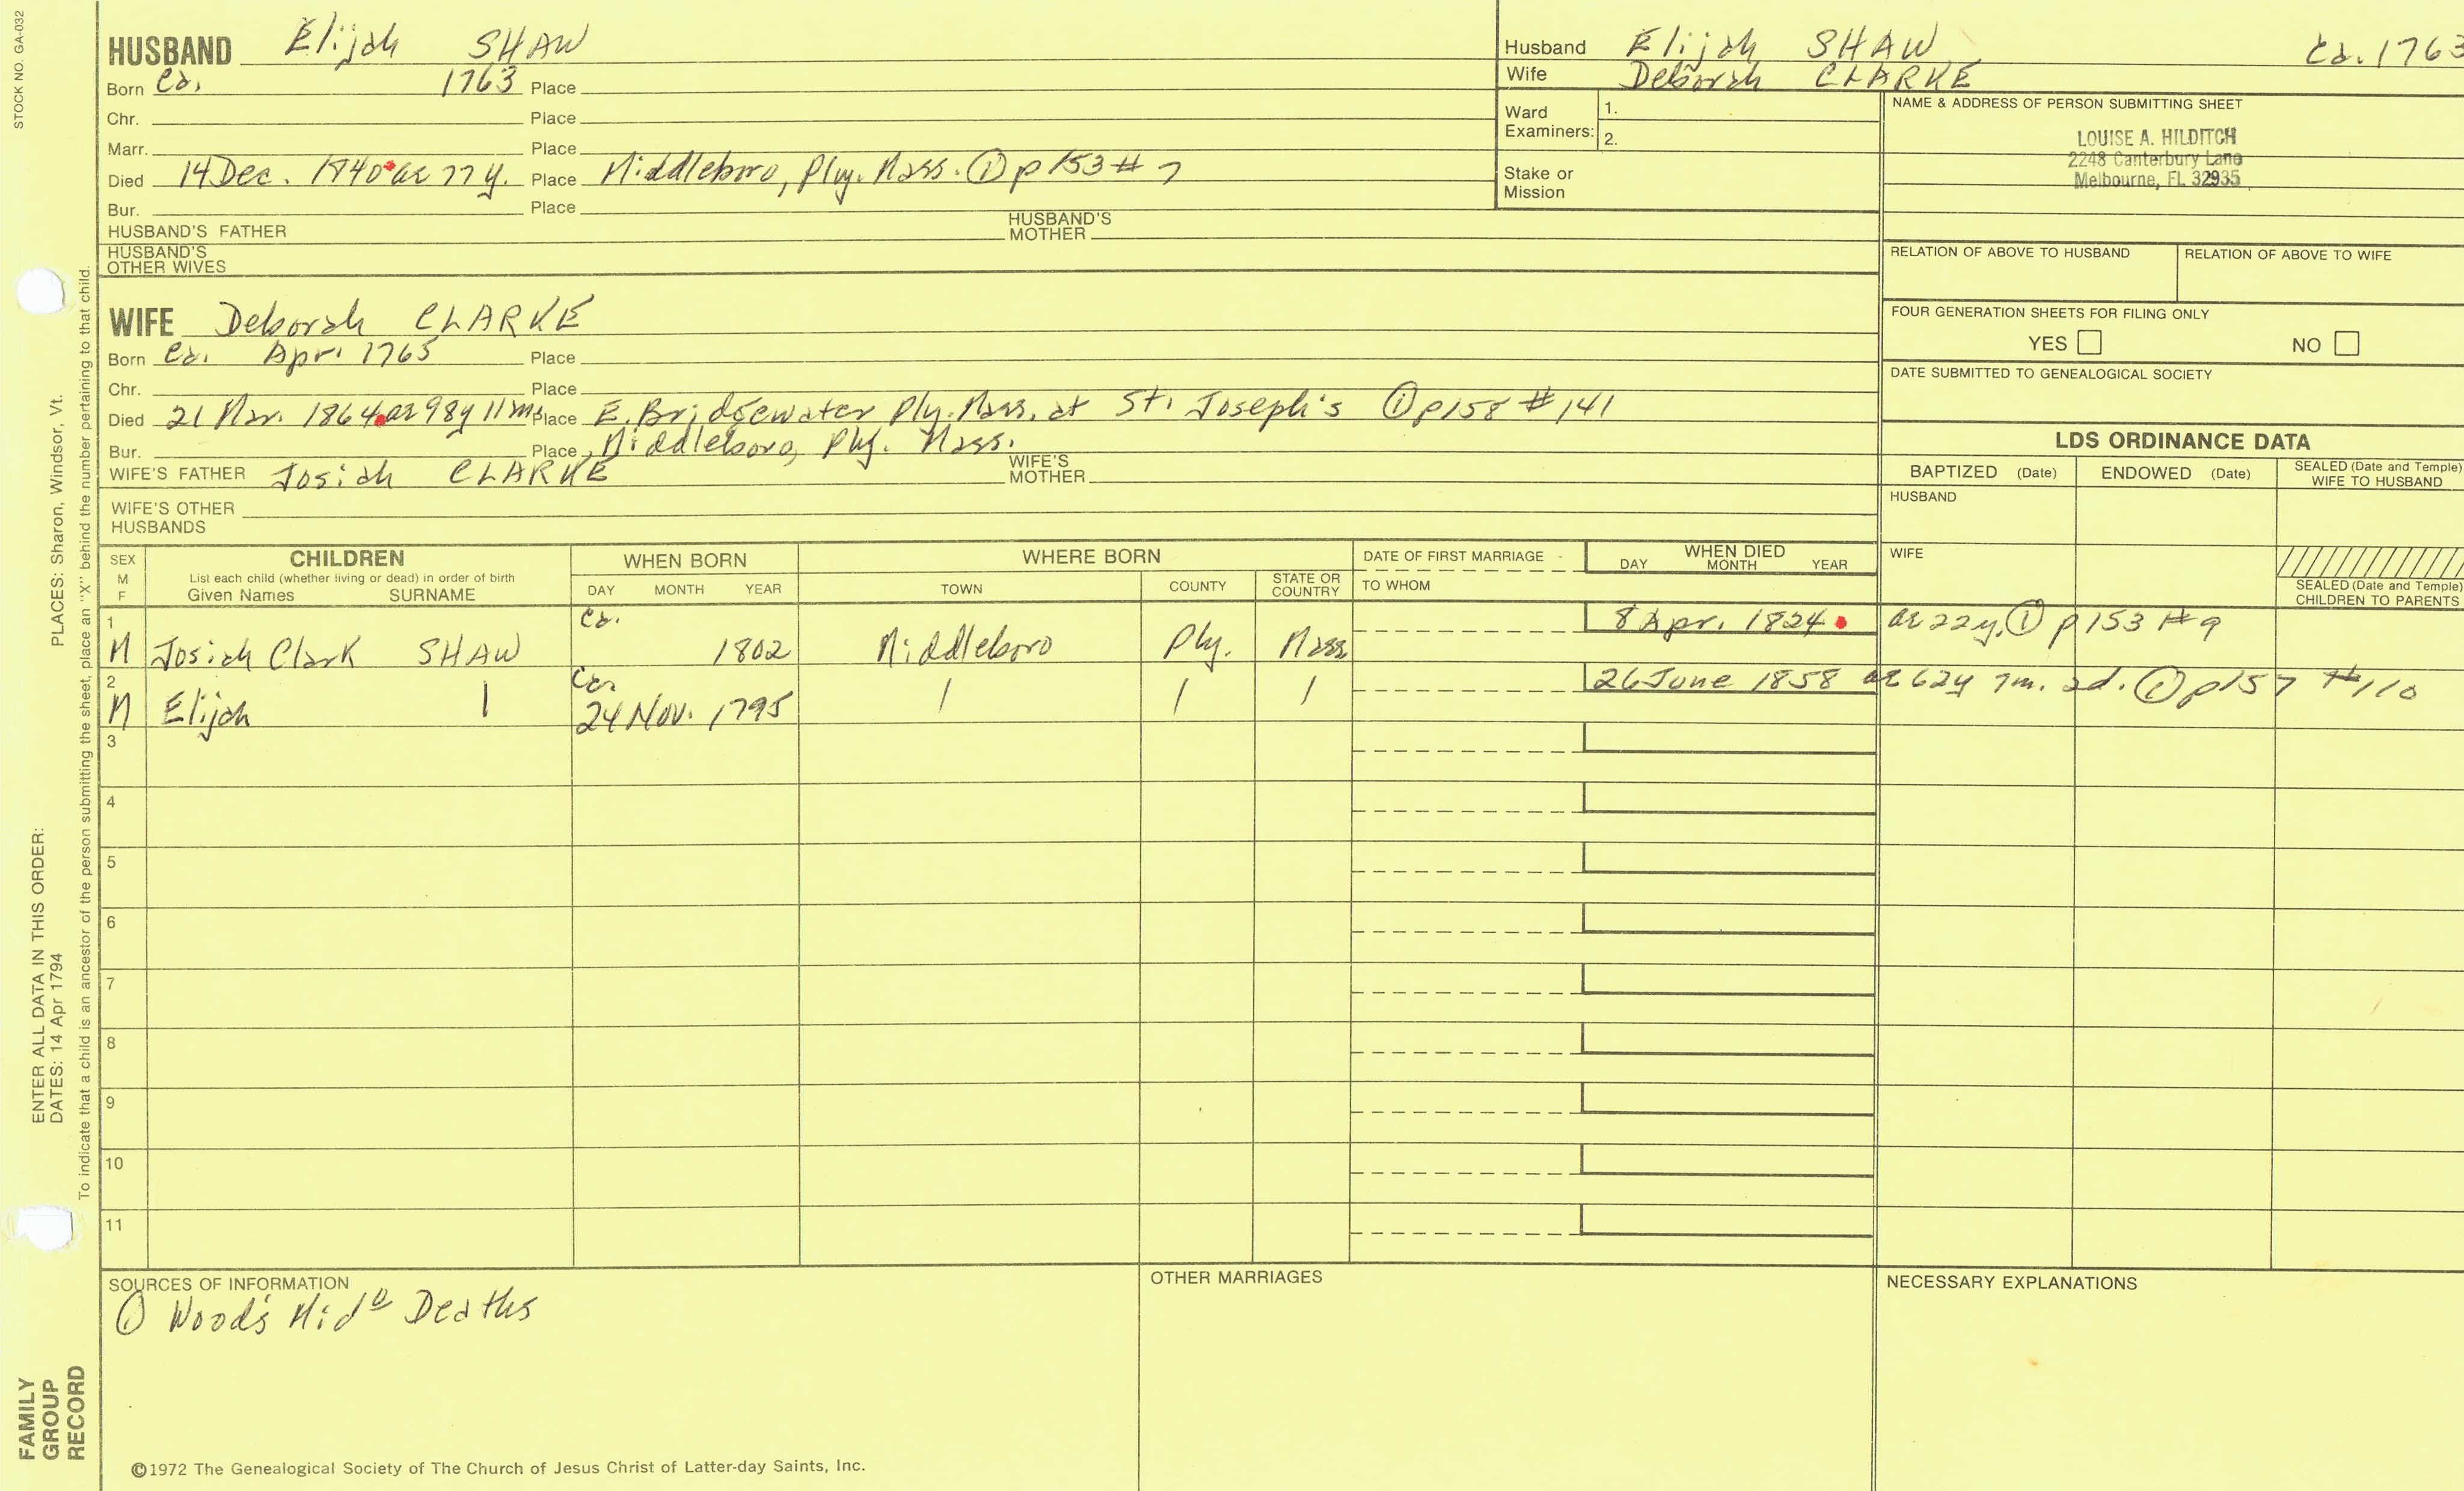 STOCK NO. GA-032
HUSBAND Elijah SHAW
Born Ca. 1763 Place
Chr. Place
Marr. Place
Died 14 Dec. 1840 ae 77 y. Place Middleboro, Ply. Mass. ① p 153 # 7
Bur. Place
HUSBAND'S FATHER HUSBAND'S MOTHER
HUSBAND'S OTHER WIVES
WIFE Deborah CLARKE
Born Ca. Apr. 1765 Place
Chr. Place
Died 21 Mar. 1864 ae 98y 11ms Place E. Bridgewater Ply. Mass. at St. Joseph's ① p158 #141
Bur. Place Middleboro, Ply. Mass.
WIFE'S FATHER Josiah CLARKE WIFE'S MOTHER
WIFE'S OTHER HUSBANDS
Husband Elijah SHAW Ca. 1763
Wife Deborah CLARKE
Ward Examiners: 1.
2.
Stake or Mission
NAME & ADDRESS OF PERSON SUBMITTING SHEET
LOUISE A. HILDITCH
2248 Canterbury Lane
Melbourne, FL 32935
RELATION OF ABOVE TO HUSBAND RELATION OF ABOVE TO WIFE
FOUR GENERATION SHEETS FOR FILING ONLY
YES NO
DATE SUBMITTED TO GENEALOGICAL SOCIETY
LDS ORDINANCE DATA
BAPTIZED (Date) ENDOWED (Date) SEALED (Date and Temple) WIFE TO HUSBAND
HUSBAND
WIFE
SEALED (Date and Temple) CHILDREN TO PARENTS
SEX M F
CHILDREN
List each child (whether living or dead) in order of birth
Given Names SURNAME
WHEN BORN
DAY MONTH YEAR
WHERE BORN
TOWN COUNTY STATE OR COUNTRY
DATE OF FIRST MARRIAGE
TO WHOM
WHEN DIED
DAY MONTH YEAR
1 M Josiah Clark SHAW Ca. 1802 Middleboro Ply. Mass 8 Apr. 1824 ae 22y. ① p 153 # 9
2 M Elijah | Ca. 24 Nov. 1795 | | | 26 June 1858 ae 62y 7m. 2d. ① p157 #110
3
4
5
6
7
8
9
10
11
SOURCES OF INFORMATION
① Wood's Mid° Deaths
OTHER MARRIAGES
NECESSARY EXPLANATIONS
©1972 The Genealogical Society of The Church of Jesus Christ of Latter-day Saints, Inc.
PLACES: Sharon, Windsor, Vt.
To indicate that a child is an ancestor of the person submitting the sheet, place an "X" behind the number pertaining to that child.
ENTER ALL DATA IN THIS ORDER:
DATES: 14 Apr 1794
FAMILY GROUP RECORD